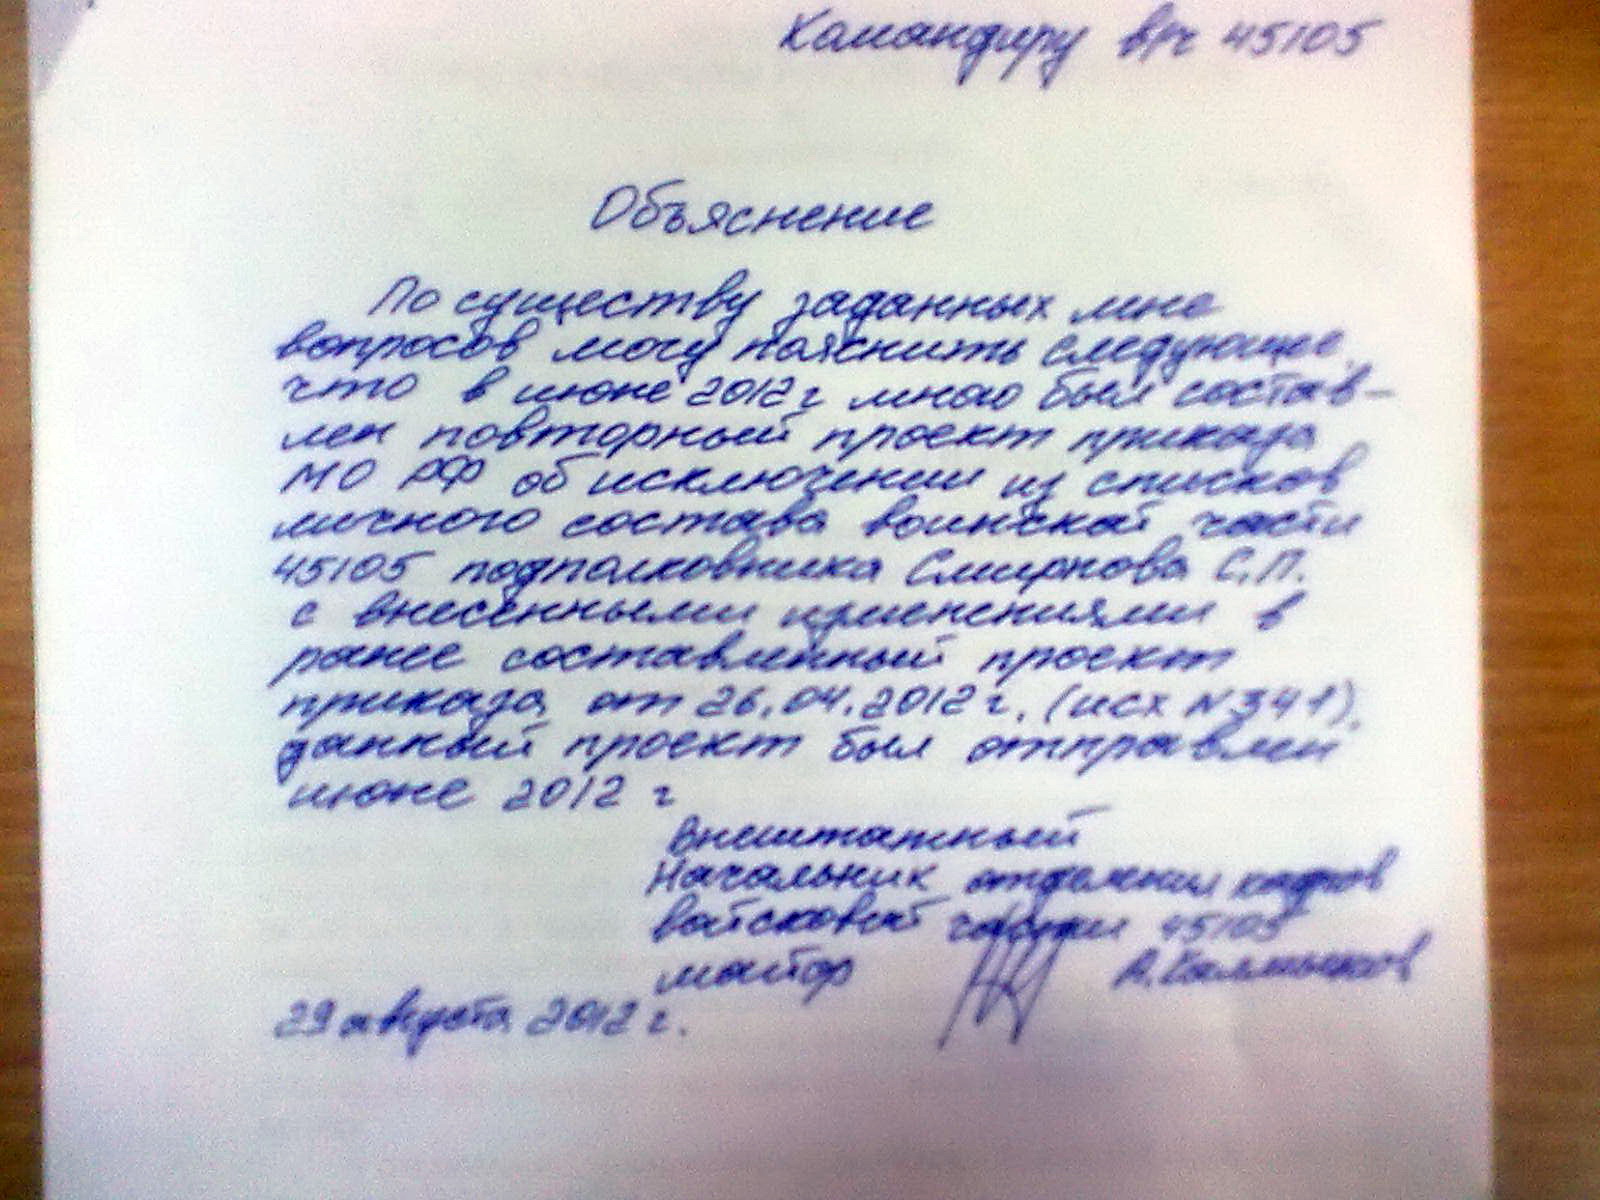 Командиру в/ч 45105
Объяснение
По существу заданных мне
вопросов могу пояснить следующее,
что в июне 2012 г мною был состав-
лен повторный проект приказа
МО РФ об исключении из списков
личного состава воинской части
45105 подполковника Смирнова С.П.
с внесёнными изменениями в
ранее составленный проект
приказа от 26.04.2012 г. (исх N 341).
данный проект был отправлен
июне 2012 г
Внештатный
Начальник отделения кадров
войсковой части 45105
майор А. Калмыков
29 августа 2012 г.